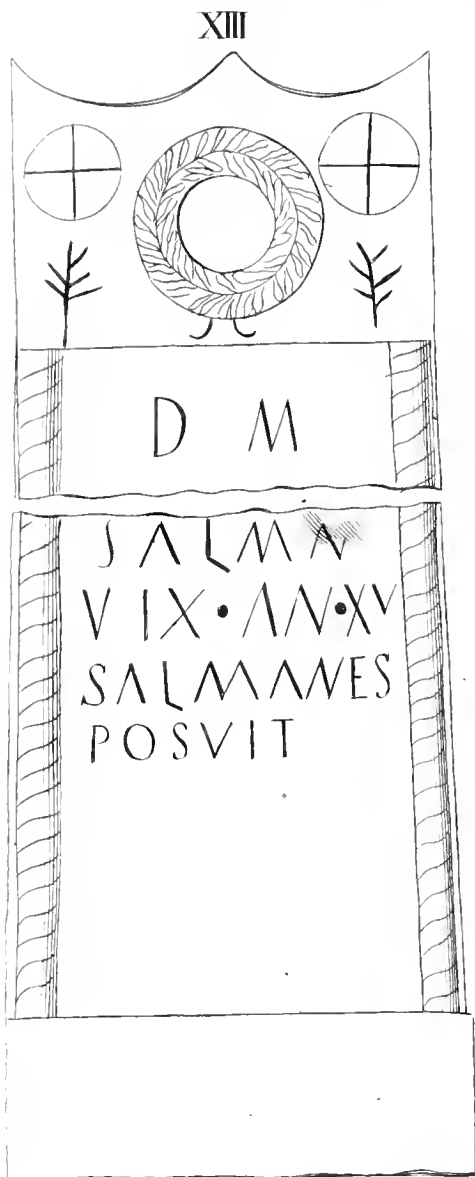 XIII
D M
SALMAN
VIX•AN•XV
SALMANES
POSVIT